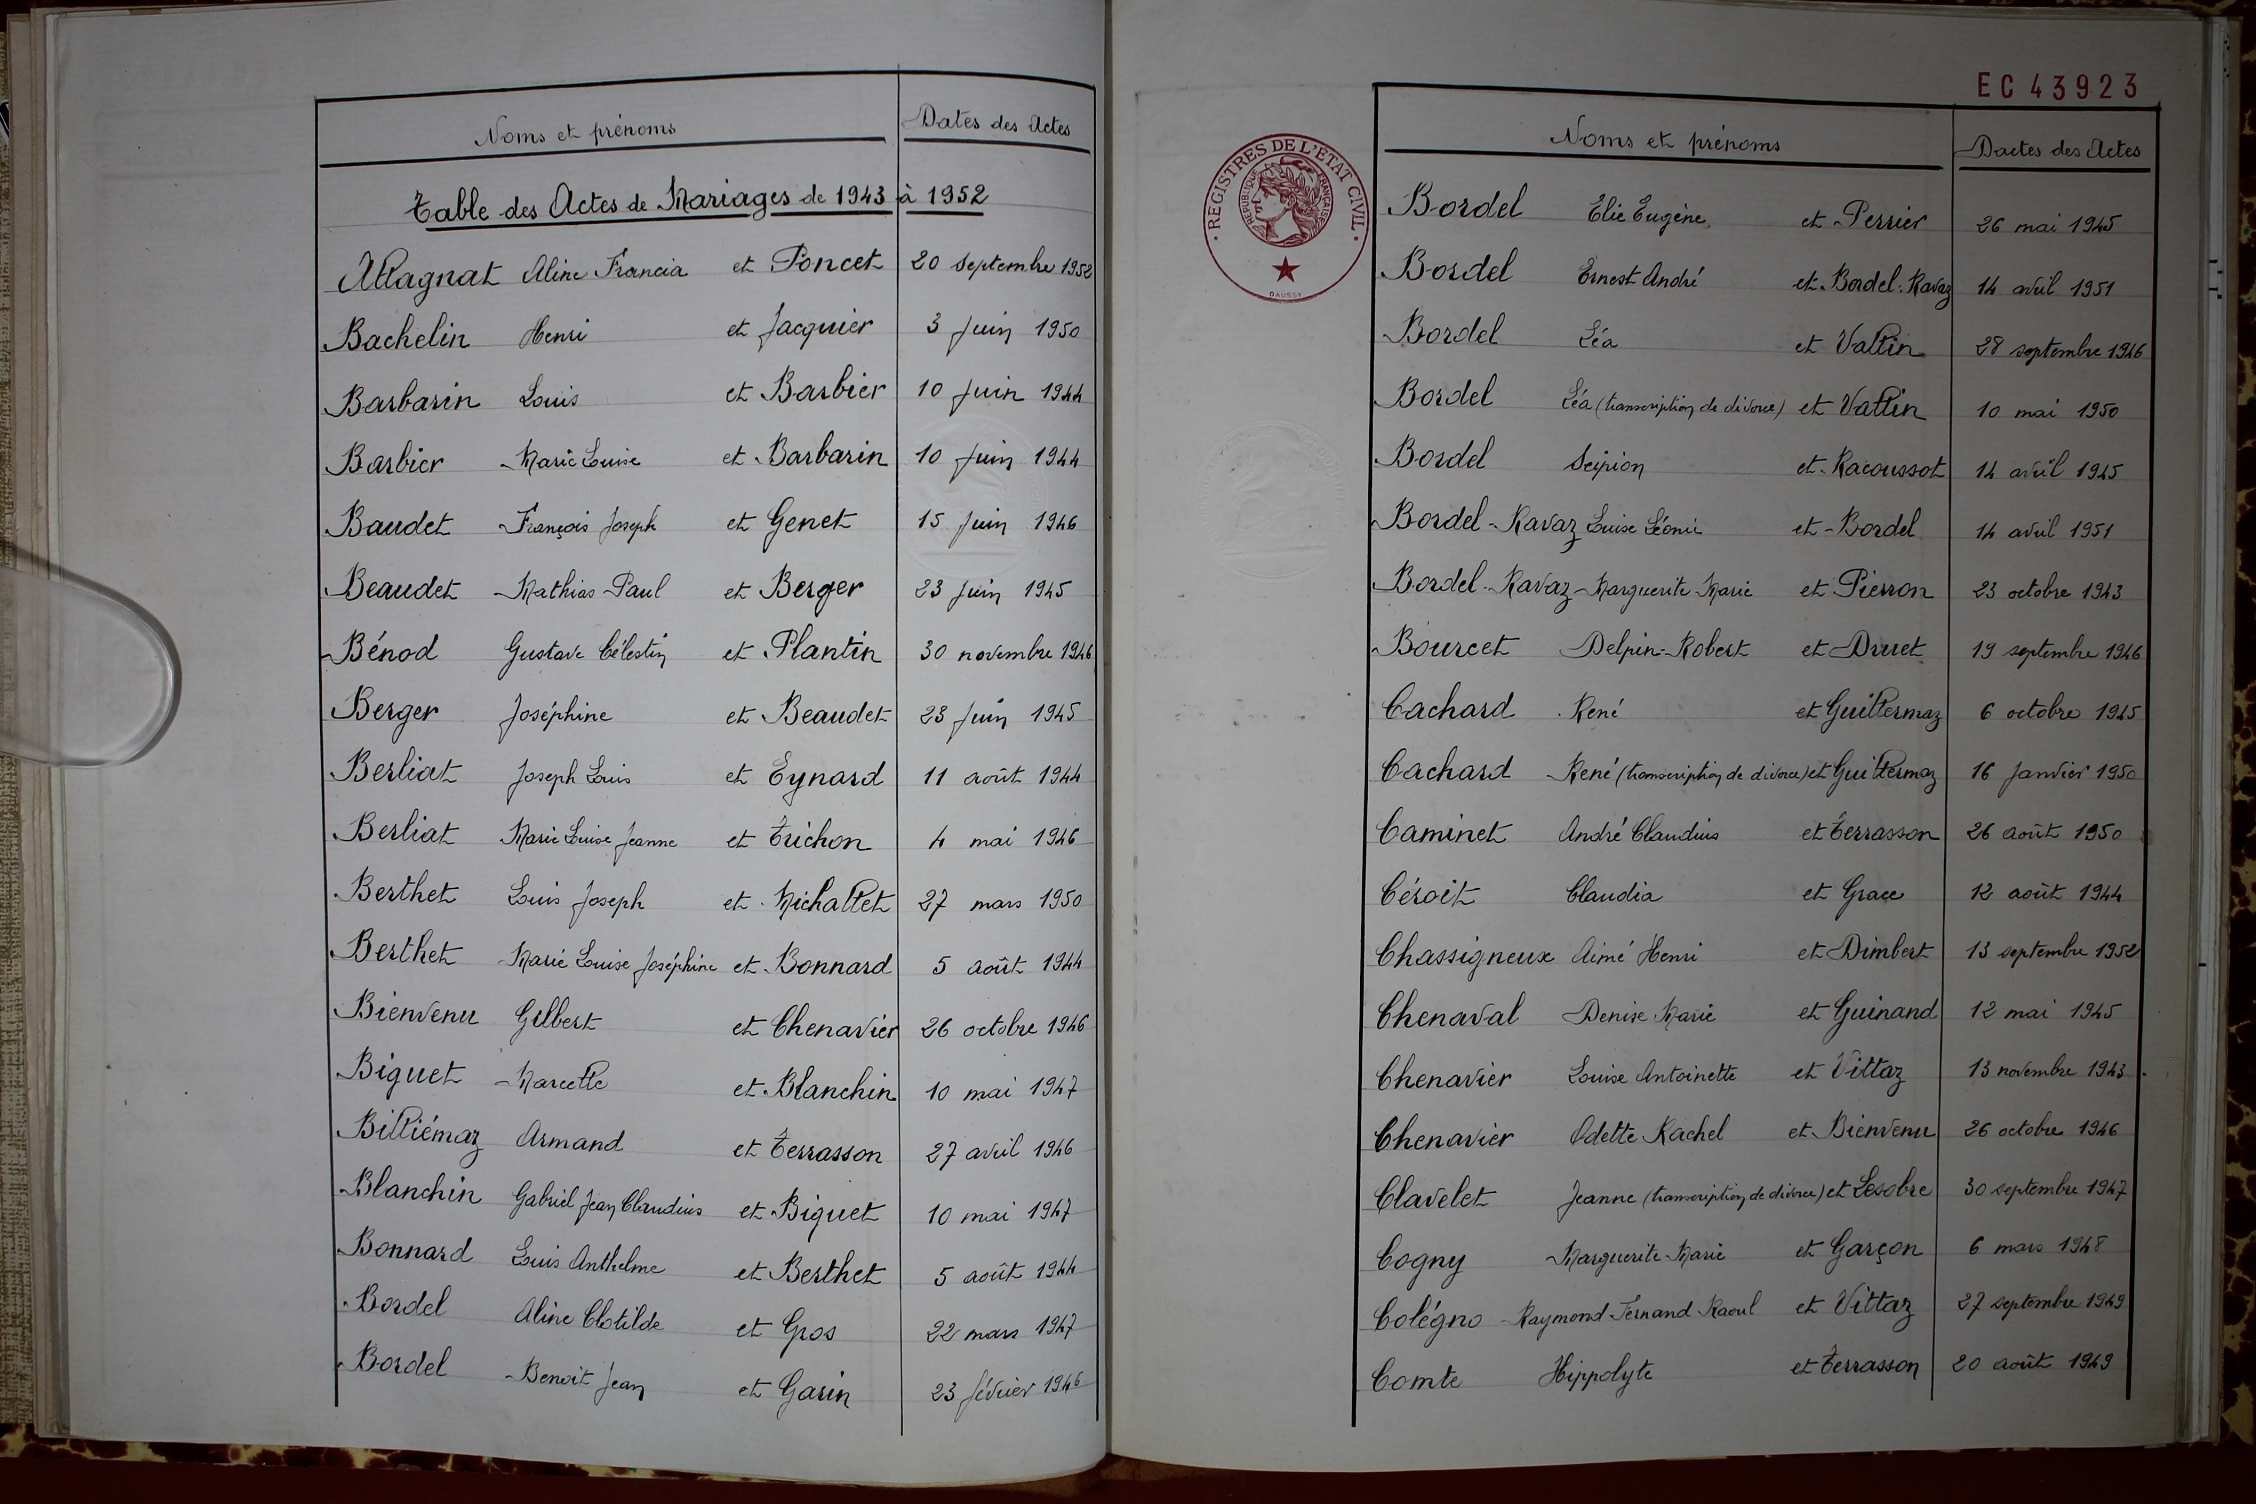 Noms et prénoms Dates des Actes
Table des Actes de Mariages de 1943 à 1952
Allagnat Aline Francia et Poncet 20 septembre 1952
Bachelin Henri et Jacquier 3 Juin 1950
Barbarin Louis et Barbier 10 Juin 1944
Barbier Marie Louise et Barbarin 10 Juin 1944
Baudet François Joseph et Genet 15 Juin 1946
Beaudet Mathias Paul et Berger 23 Juin 1945
Bénod Gustave Célestin et Plantin 30 novembre 1946
Berger Joséphine et Beaudet 23 Juin 1945
Berliat Joseph Louis et Eynard 11 août 1944
Berliat Marie Louise Jeanne et Trichon 4 mai 1946
Berthet Louis Joseph et Michallet 27 mars 1950
Berthet Marie Louise Joséphine et Bonnard 5 août 1944
Bienvenu Gilbert et Chenavier 26 octobre 1946
Biguet Marcelle et Blanchin 10 mai 1947
Billiémaz Armand et Terrasson 27 avril 1946
Blanchin Gabriel Jean Claudius et Biguet 10 mai 1947
Bonnard Louis Anthelme et Berthet 5 août 1944
Bordel Aline Clotilde et Gros 22 mars 1947
Bordel Benoit Jean et Garin 23 février 1946
EC 43923
REGISTRES DE L'ETAT CIVIL
REPUBLIQUE FRANÇAISE
DAUSSY
Noms et prénoms Dactes des Actes
Bordel Elie Eugène et Perrier 26 mai 1945
Bordel Ernest André et Bordel-Ravaz 14 avril 1951
Bordel Léa et Vallin 28 septembre 1946
Bordel Léa (transcription de divorce) et Vallin 10 mai 1950
Bordel Scipion et Racoussot 14 avril 1945
Bordel-Ravaz Louise Léonie et Bordel 14 avril 1951
Bordel-Ravaz Marguerite Marie et Pierron 23 octobre 1943
Bourcet Delpin-Robert et Druet 19 septembre 1946
Cachard René et Guillermaz 6 octobre 1945
Cachard René (transcription de divorce) et Guillermaz 16 Janvier 1950
Caminet André Claudius et Terrasson 26 août 1950
Céroit Claudia et Grace 12 août 1944
Chassigneux Aimé Henri et Dimbert 13 septembre 1952
Chenaval Denise Marie et Guinand 12 mai 1945
Chenavier Louise Antoinette et Vittaz 13 novembre 1943
Chenavier Odette Rachel et Bienvenu 26 octobre 1946
Clavelet Jeanne (transcription de divorce) et Lesobre 30 septembre 1947
Cogny Marguerite Marie et Garçon 6 mars 1948
Colégno Raymond Fernand Raoul et Vittaz 27 septembre 1949
Comte Hippolyte et Terrasson 20 août 1949